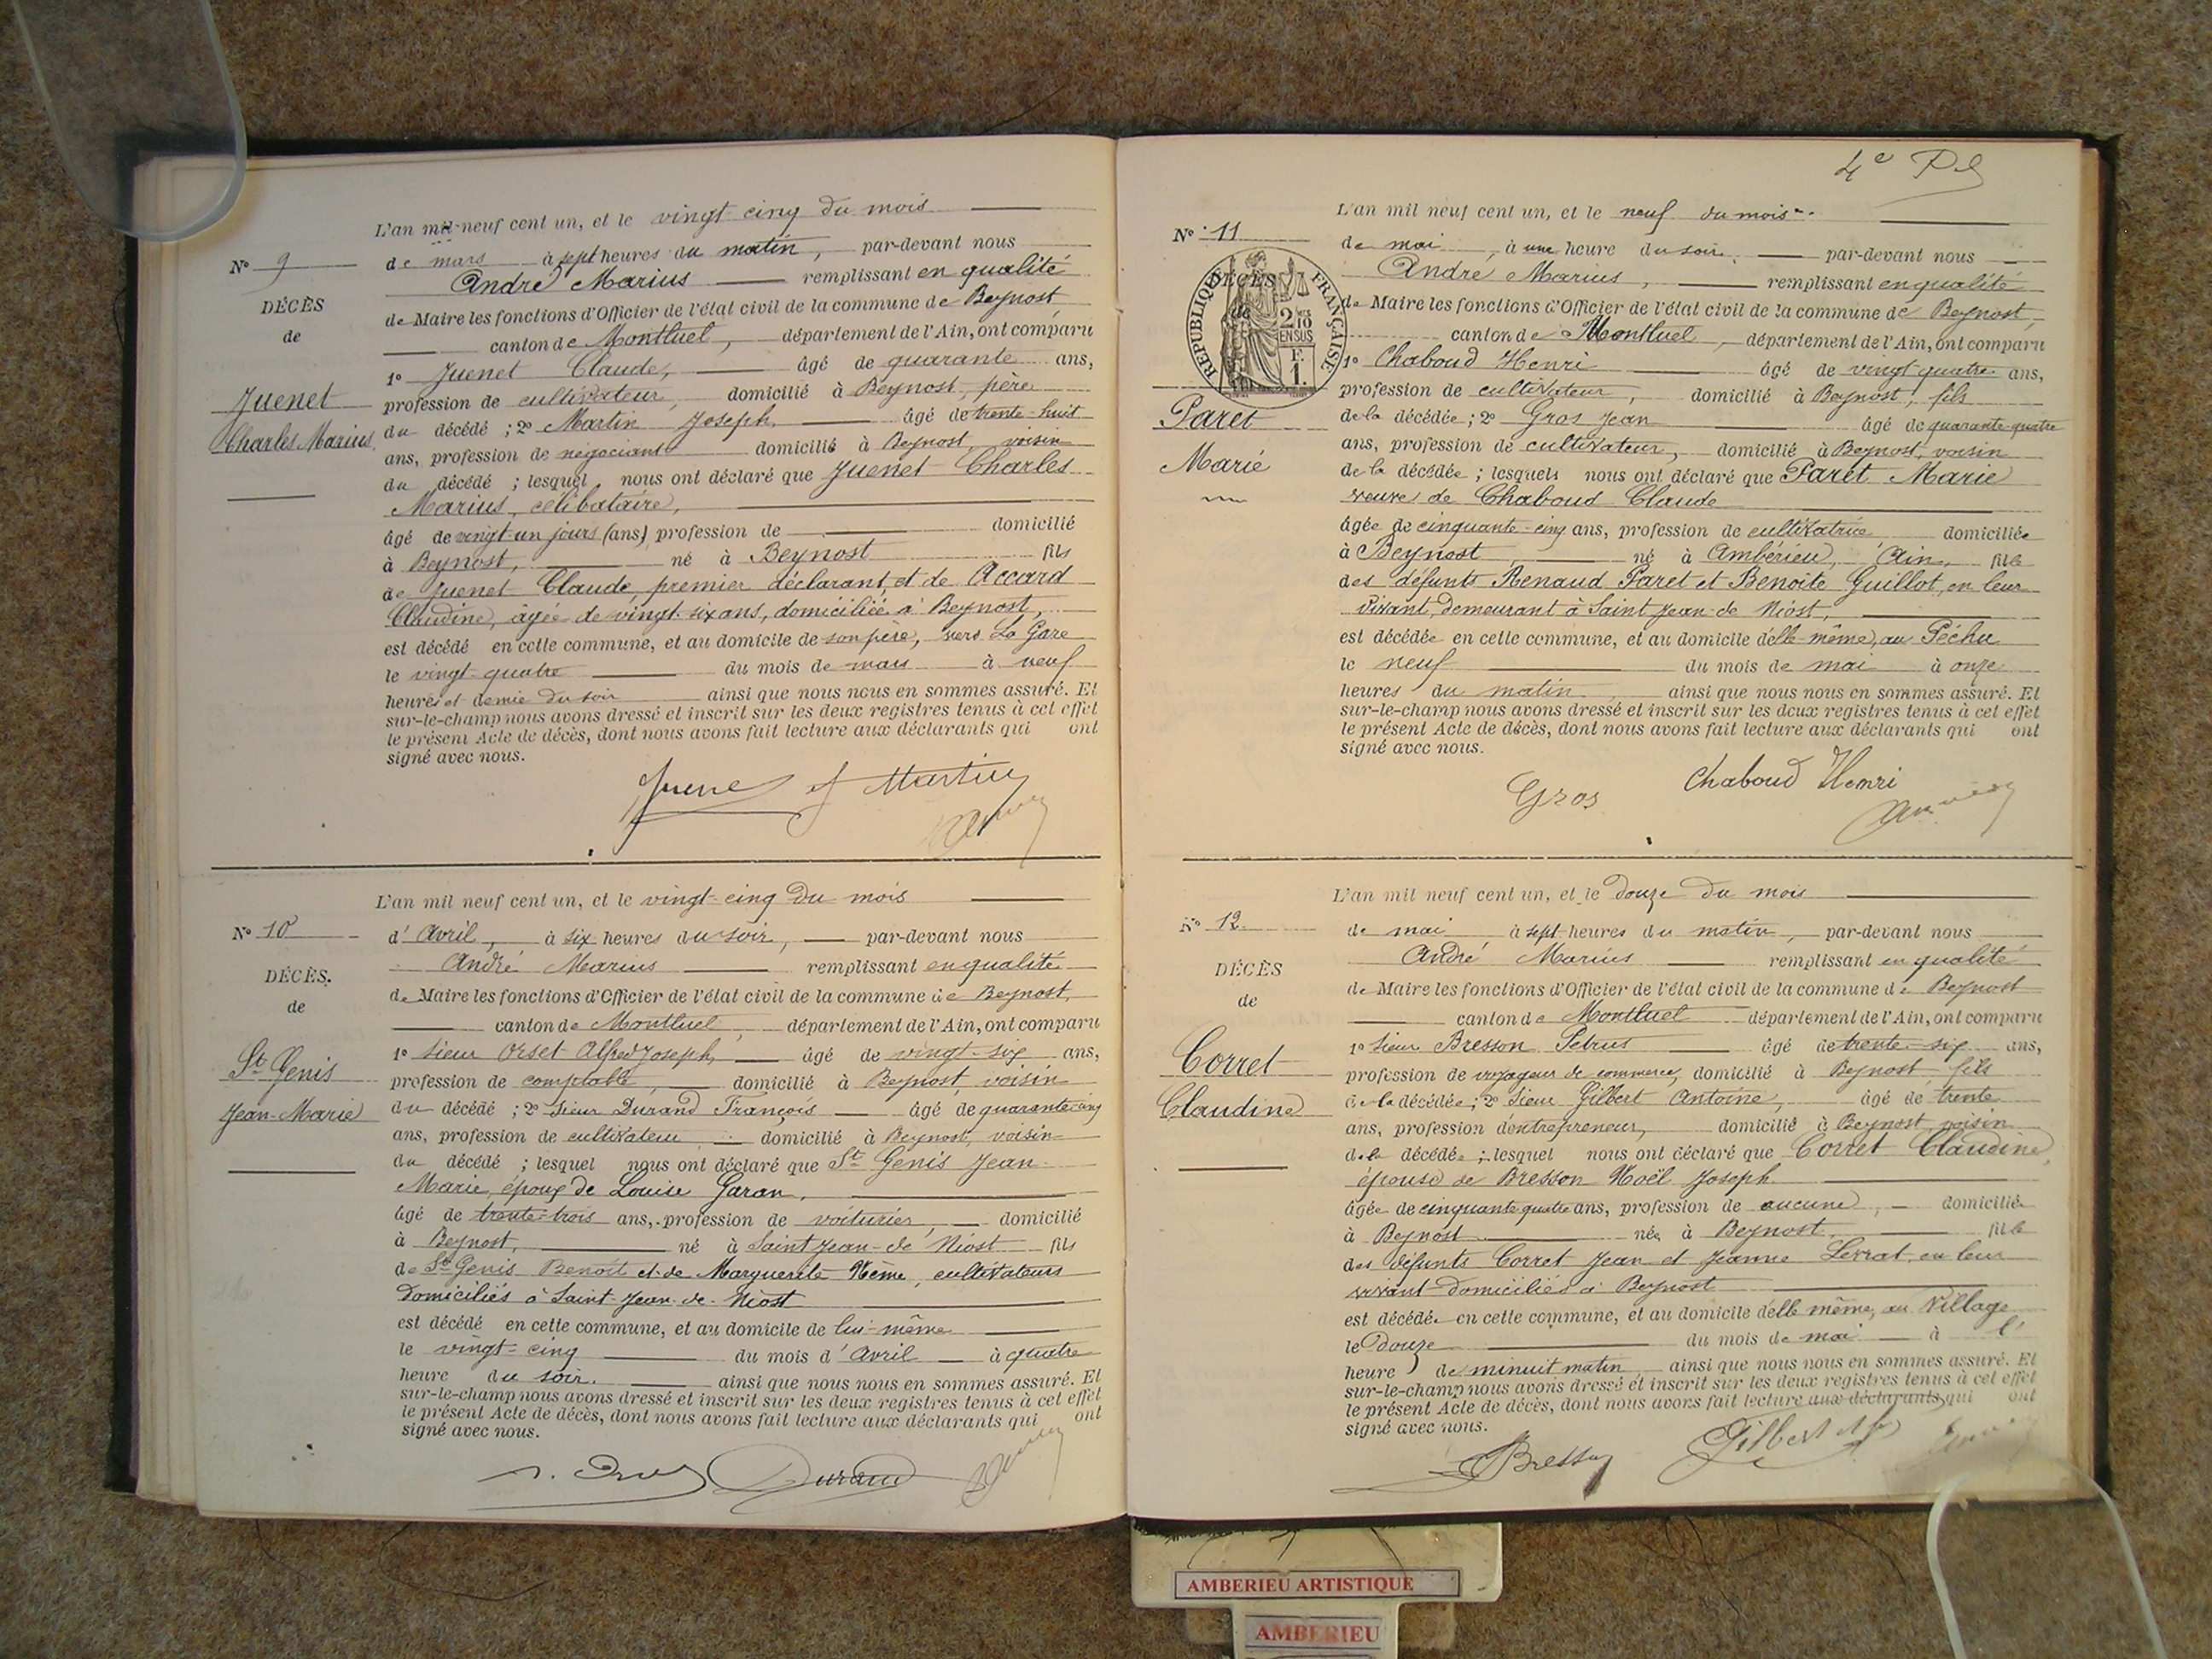 L'an mil neuf cent un, et le vingt-cinq du mois
N° 9
de mars à sept heures du matin, par-devant nous
André Marius remplissant en qualité
DÉCÈS
de Maire les fonctions d'Officier de l'état civil de la commune de Beynost
de
canton de Montluel, département de l'Ain, ont comparu
1° Juenet Claude, âgé de quarante ans,
profession de cultivateur, domicilié à Beynost, père
Juenet
du décédé ; 2° Martin Joseph, âgé de trente-huit
Charles Marius
ans, profession de négociant domicilié à Beynost, voisin
du décédé ; lesquel nous ont déclaré que Juenet Charles
Marius, célibataire,
âgé de vingt-un jours (ans) profession de domicilié
à Beynost, né à Beynost fils
de Juenet Claude, premier déclarant, et de Accard
Claudine, âgée de vingt-six ans, domiciliée à Beynost,
est décédé en cette commune, et au domicile de son père, vers La Gare
le vingt-quatre du mois de mars à neuf
heures et demie du soir ainsi que nous nous en sommes assuré. Et
sur-le-champ nous avons dressé et inscrit sur les deux registres tenus à cet effet
le présent Acte de décès, dont nous avons fait lecture aux déclarants qui ont
signé avec nous.
Juenet J Martin
L'an mil neuf cent un, et le vingt-cinq du mois
N° 10
d'Avril, à six heures du soir, par-devant nous
André Marius remplissant en qualité
DÉCÈS.
de Maire les fonctions d'Officier de l'état civil de la commune de Beynost,
de
canton de Montluel, département de l'Ain, ont comparu
1° Sieur Orset Alfred Joseph, âgé de vingt-six ans,
St Genis
profession de comptable, domicilié à Beynost, voisin
Jean-Marie
du décédé ; 2° Sieur Durand François âgé de quarante-cinq
ans, profession de cultivateur domicilié à Beynost, voisin
du décédé ; lesquel nous ont déclaré que St Genis Jean-
Marie, époux de Louise Garan,
âgé de trente-trois ans, profession de voiturier, domicilié
à Beynost, né à Saint Jean-de Niost fils
de St Genis Benoît et de Marguerite Hême, cultivateurs
domiciliés à Saint-Jean-de-Niost
est décédé en cette commune, et au domicile de lui-même
le vingt-cinq du mois d'Avril à quatre
heure du soir. ainsi que nous nous en sommes assuré. Et
sur-le-champ nous avons dressé et inscrit sur les deux registres tenus à cet effet
le présent Acte de décès, dont nous avons fait lecture aux déclarants qui ont
signé avec nous.
Durand
4e
L'an mil neuf cent un, et le neuf du mois
N° 11
de mai, à une heure du soir, par-devant nous
André Marius, remplissant en qualité
DÉCÈS
RÉPUBLIQUE FRANÇAISE
de
2/10 EN SUS
F. 1.
de Maire les fonctions d'Officier de l'état civil de la commune de Beynost,
canton de Montluel, département de l'Ain, ont comparu
1° Chaboud Henri âgé de vingt-quatre ans,
profession de cultivateur, domicilié à Beynost, fils
Paret
de la décédée ; 2° Gros Jean âgé de quarante-quatre
ans, profession de cultivateur, domicilié à Beynost, voisin
Marie
de la décédée ; lesquels nous ont déclaré que Paret Marie
veuve de Chaboud Claude
âgée de cinquante-cinq ans, profession de cultivatrice domiciliée
à Beynost né à Ambérieu, Ain, fille
des défunts Renaud Paret et Benoîte Guillot, en leur
vivant, demeurant à Saint Jean-de Niost,
est décédée en cette commune, et au domicile d'elle-même, au Péchu
le neuf du mois de mai à onze
heures du matin ainsi que nous nous en sommes assuré. Et
sur-le-champ nous avons dressé et inscrit sur les deux registres tenus à cet effet
le présent Acte de décès, dont nous avons fait lecture aux déclarants qui ont
signé avec nous.
Gros Chaboud Henri
L'an mil neuf cent un, et le douze du mois
N° 12
de mai à sept heures du matin, par-devant nous
André Marius remplissant en qualité
DÉCÈS
de Maire les fonctions d'Officier de l'état civil de la commune de Beynost
de
canton de Montluel département de l'Ain, ont comparu
1° Sieur Bresson Petrus âgé de trente-six ans,
Corret
profession de voyageur de commerce, domicilié à Beynost fils
Claudine
de la décédée ; 2° Sieur Gilbert Antoine, âgé de trente
ans, profession d'entrepreneur, domicilié à Beynost, voisin
de la décédée ; lesquel nous ont déclaré que Corret Claudine,
épouse de Bresson Noël Joseph
âgée de cinquante quatre ans, profession de aucune, domiciliée
à Beynost née à Beynost fille
des défunts Corret Jean et Jeanne Serrat, en leur
vivant domiciliés à Beynost
est décédée en cette commune, et au domicile d'elle même, au Village
le douze du mois de mai à l'
heure de minuit matin ainsi que nous nous en sommes assuré. Et
sur-le-champ nous avons dressé et inscrit sur les deux registres tenus à cet effet
le présent Acte de décès, dont nous avons fait lecture aux déclarants qui ont
signé avec nous.
Bresson Gilbert
AMBERIEU ARTISTIQUE
AMBERIEU